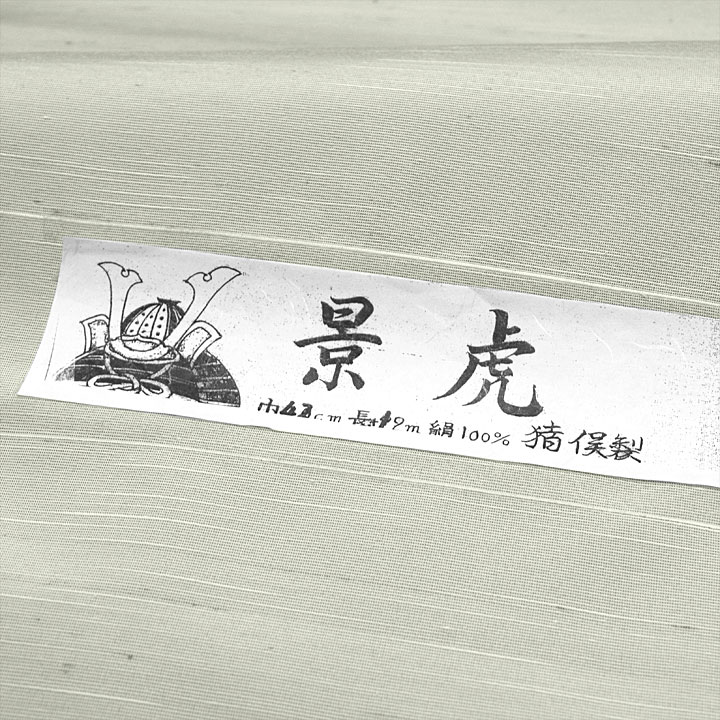 景虎
巾 cm 長 9m 絹100% 猪俣製